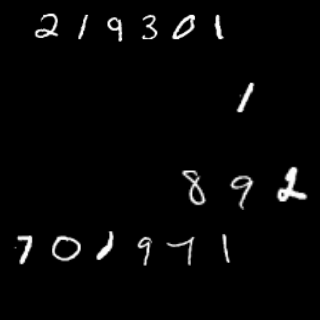 219301
1
892
701971